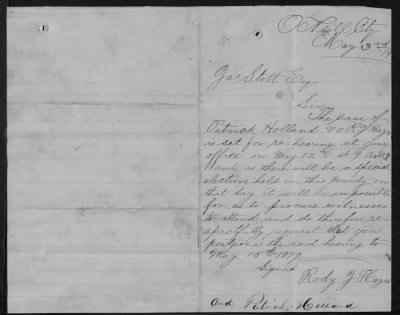 O'Neill City
May 3rd 79
Jas Stott Esq
Sir
The case of
Patrick Holland vs R J Hayes
is set for re-hearing at your
office on May 12th at 9 A.M.
and as there will be a special
election held in this County on
that day it will be impossible
for us to procure witnesses
to attend, and do therefore re-
spectfully request that you
postpone the said hearing to
May 15th 1879
Signed
Rody J Hayes
and Patrick Holland